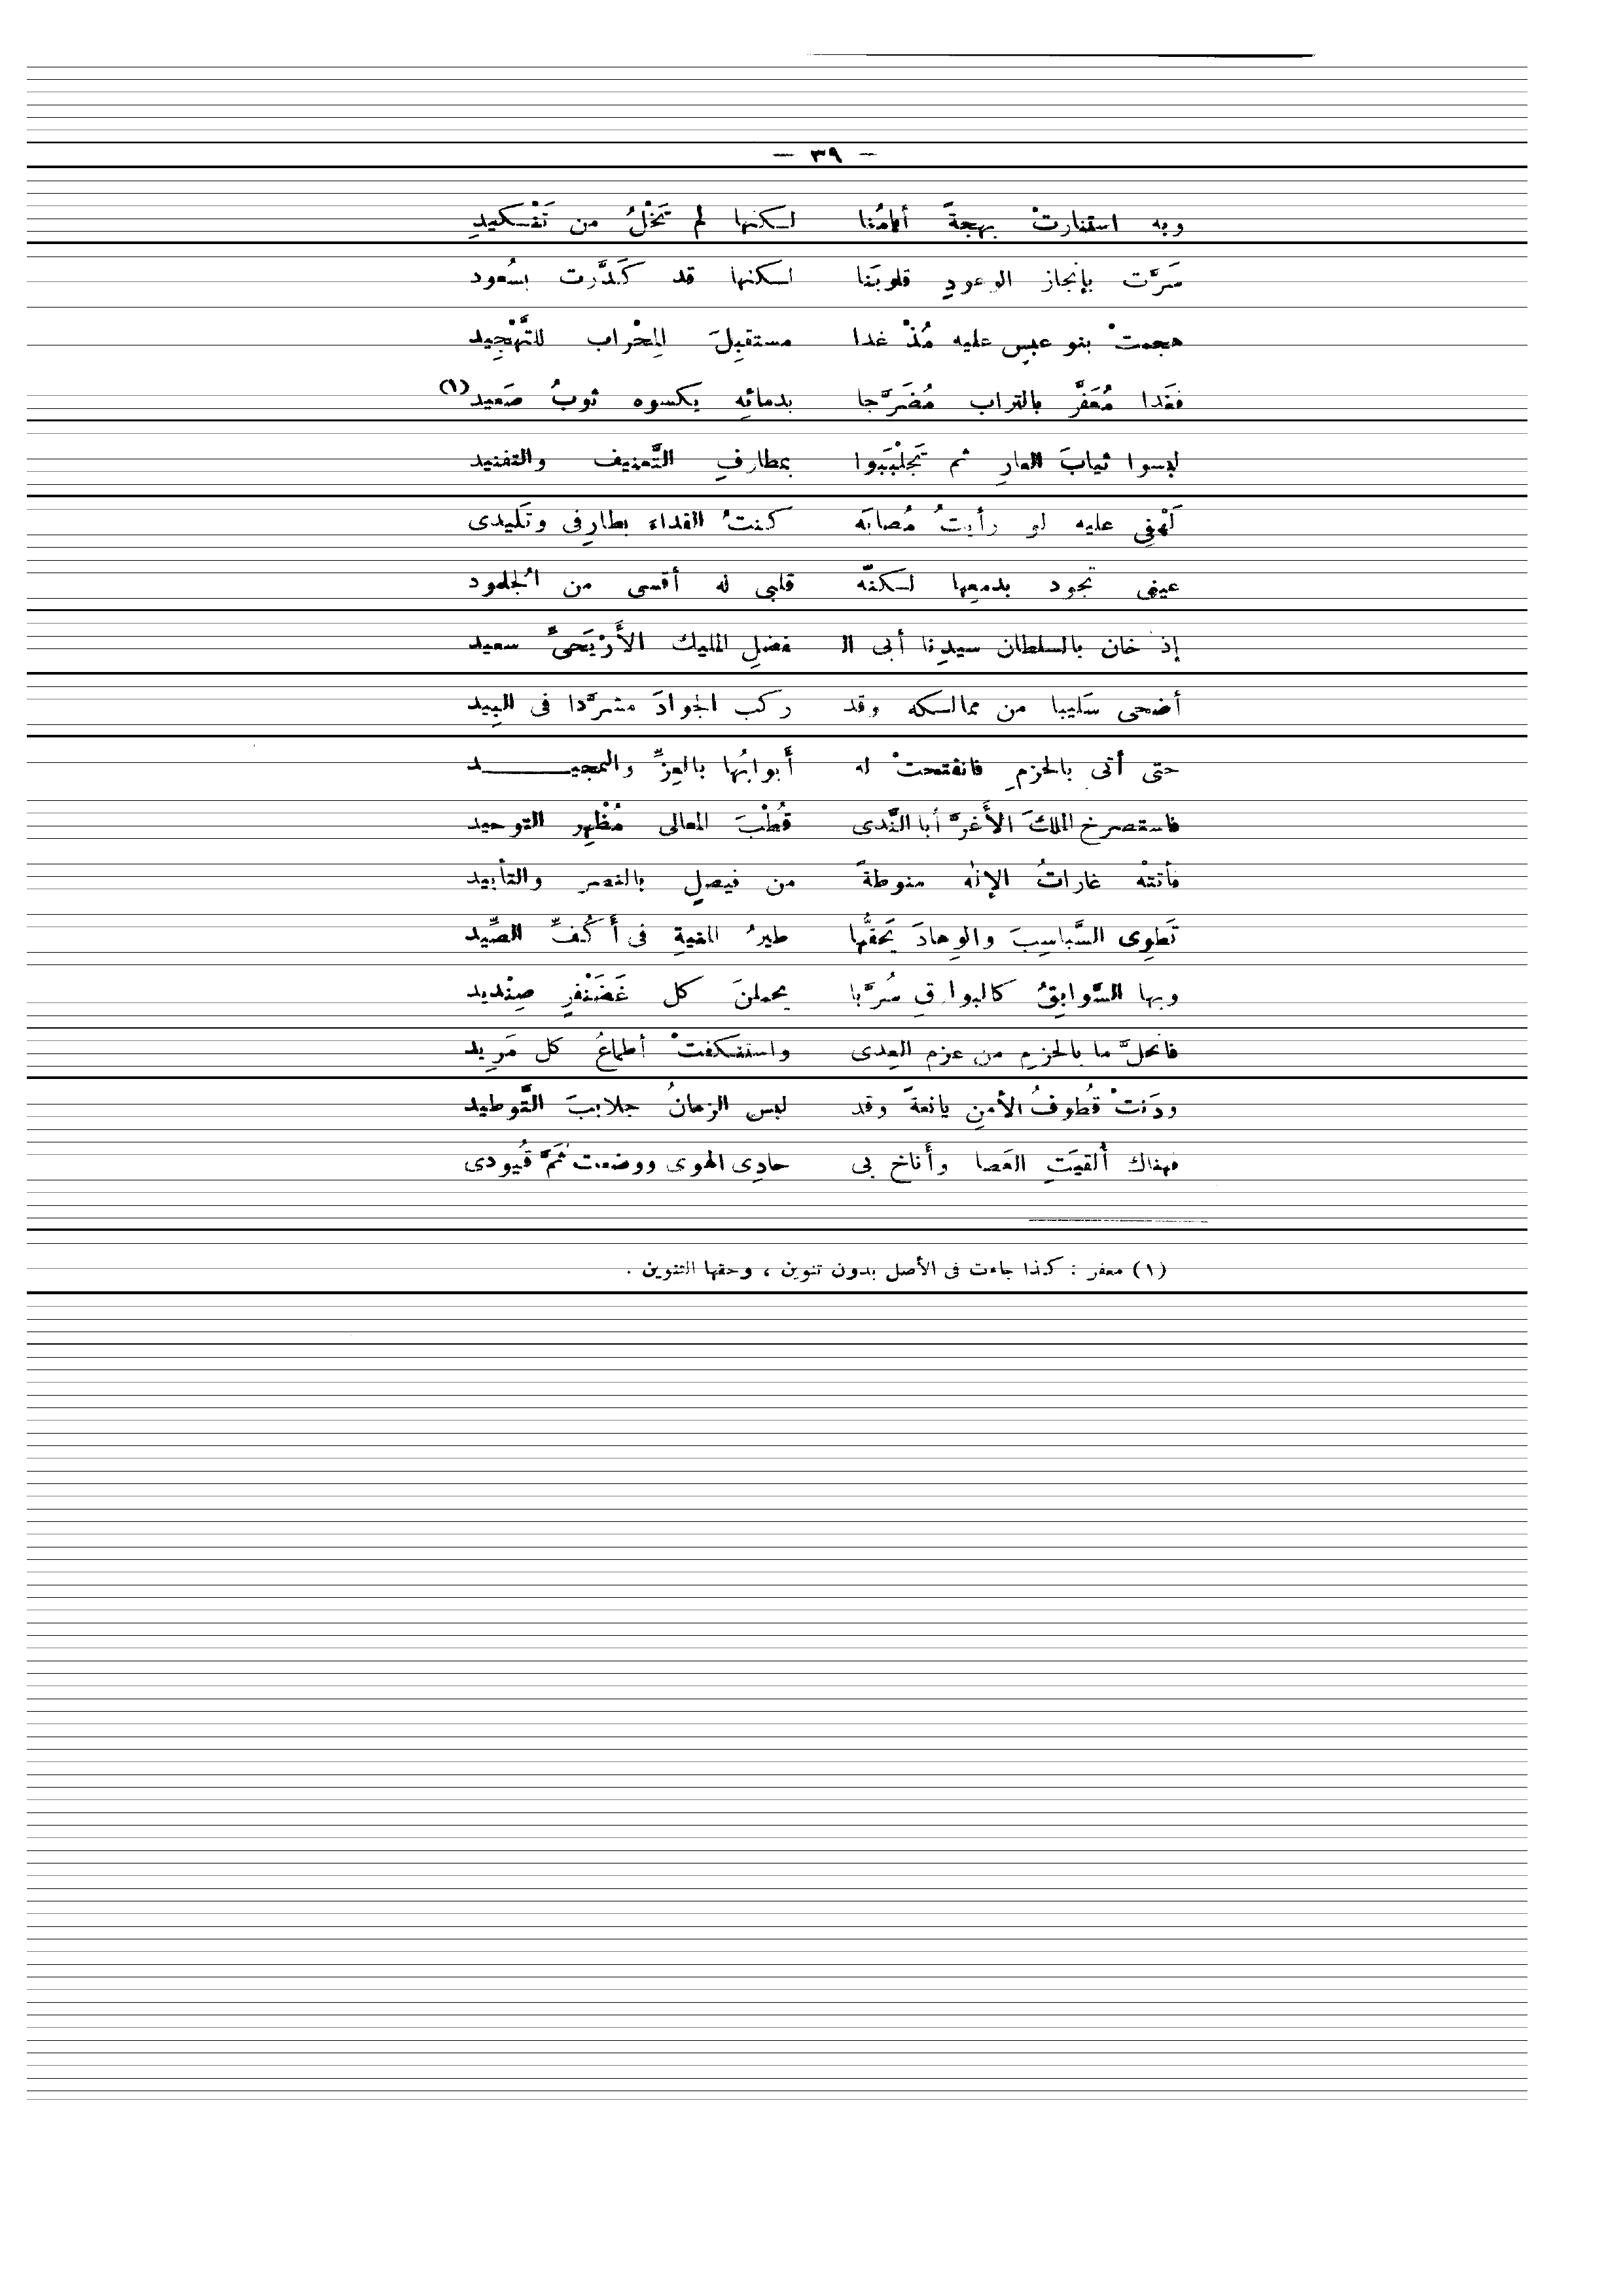 — ٣٩ —
وبه استنارتْ بهجةً أيامُنا لكنها لم تَخْلُ من تَنْكيدِ
سَرَّت بإنجاز الوعودِ قلوبَنا لكنها قد كَدَّرت بسُعود
هجمتْ بنو عبسٍ عليه مُذْ غدا مستقبِلَ المِحْراب للتَّهْجِيد
فغَدا مُعَفَّر بالتراب مُضَرَّجا بدمائِه يكسوه ثوبُ صَعيد(١)
لبسوا ثيابَ العارِ ثم تَجَلْبَبَوا بمطارفِ التَّعنيف والتفنيد
لَهْفِي عليه لو رأيتُ مُصابَه كنتُ الفداء بطارِفى وتَليدى
عينى تجود بدمعِها لكنّه قلبى له أقسى من الُجلمود
إذ خان بالسلطان سيدِنا أبى الـ فضلِ المليك الأَرْيَحىِّ سعيد
أضحى سَليبا من ممالكه وقد ركب الجوادَ مشرَّدا فى البِيد
حتى أتى بالحزمِ فانفتحتْ له أَبوابُها بالعِزِّ والتمجيـــــد
فاستصرخ الملكَ الأَغرَّ أبا النَّدى قُطْبَ المعالى مُظْهِر التوحيد
فأتتْه غاراتُ الإلٰه منوطةً من فيصلٍ بالنصر والتأييد
تَطوِى السَّباسِبَ والوِهادَ يَحفُّها طيرُ المنيةِ فى أَكُفِّ الصِّيد
وبها السَّوابِقُ كالبوارقِ سُرَّبا يحملنَ كل غَضَنْفرٍ صِنْديد
فانحلَّ ما بالحزمِ من عزم العِدى واستنكفتْ أطماعُ كل مَرِيد
ودَنتْ قُطوفُ الأمنِ يانعةً وقد لبس الزمانُ جلابيبَ التَّوطيد
فهناك أُلقيَتِ العَصا وأَناخ بى حادِى الهوى ووضعت ثَمَّ قُيودى
(١) معفر : كذا جاءت فى الأصل بدون تنوين ، وحقها التنوين .